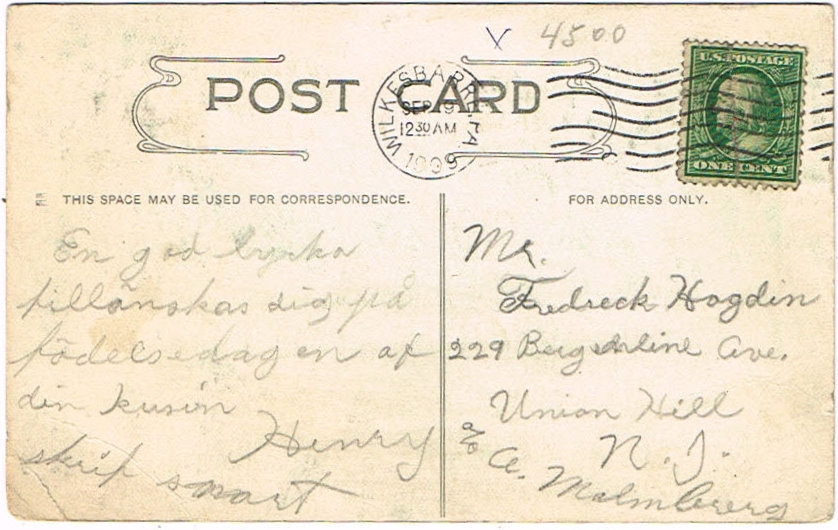 4500
POST CARD
WILKESBARRE, PA.
SEP 9
12 30 AM
1909
U.S. POSTAGE
ONE CENT
THIS SPACE MAY BE USED FOR CORRESPONDENCE.
En god lycka
tillönskas dig på
födelsedagen af
din kusin
Henry
skrif snart
FOR ADDRESS ONLY.
Mr.
Fredreck Hogdin
229 Bergenline Ave.
Union Hill
N. J.
c/o A. Malmberg